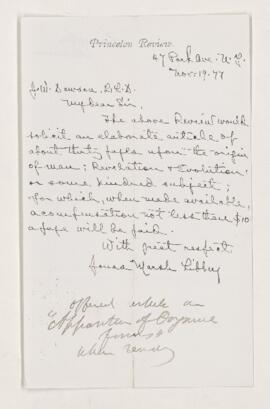 Princeton Review.
47 Park Ave. N.Y.
Nov. 19. 77
J. W. Dawson, LL.D.
My dear Sir,
The above Review would
solicit an elaborate article of
about thirty pages upon "the origin
of man; Revelation & Evolution"
or some kindred subject;
for which, when made available,
a compensation not less than $10
a page will be paid.
With great respect
Jonas Marsh Libbey
offered article on
"Apparition of Organic
forms"
when ready